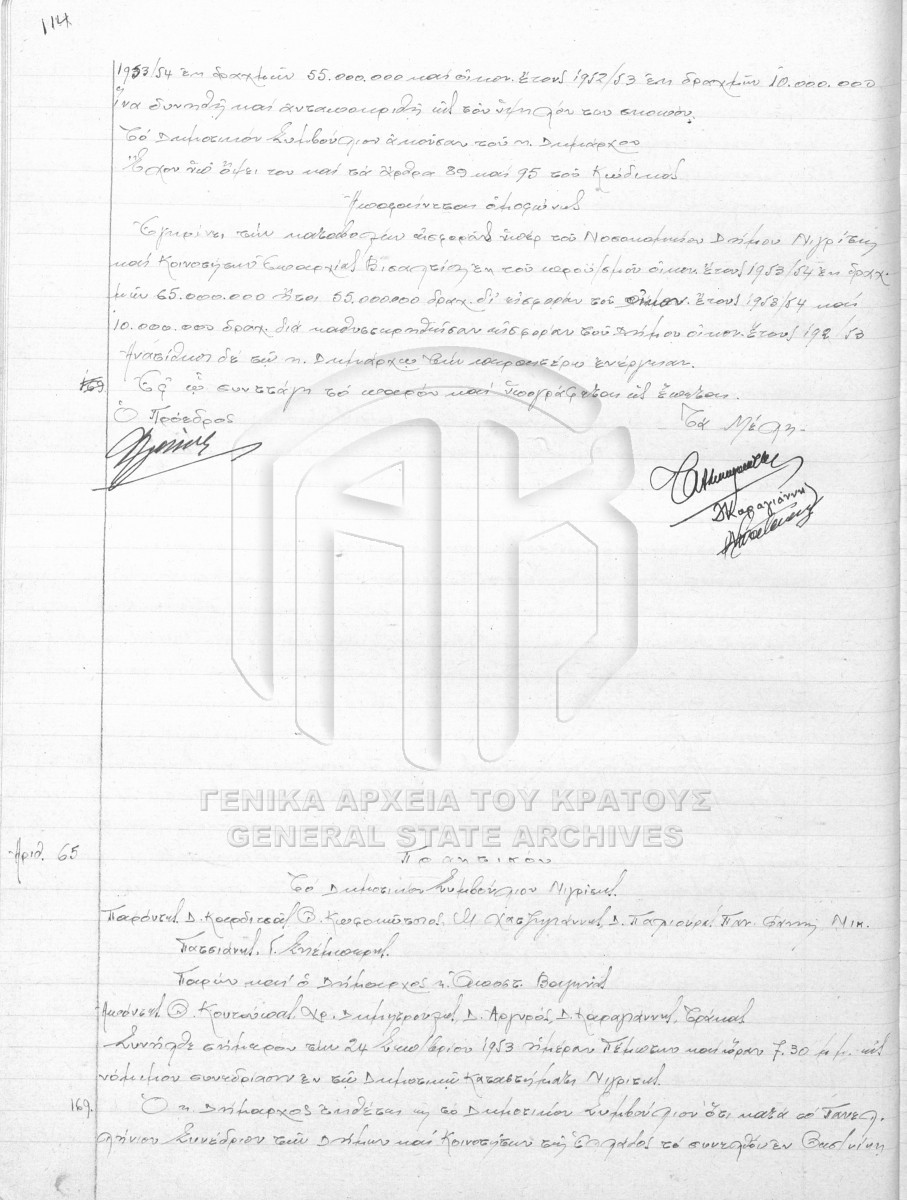 114
1953/54 ἐκ δραχμῶν 55.000.000 καὶ οἰκον. ἔτους 1952/53 ἐκ δραχμῶν 10.000.000
ἵνα δυνηθῇ καὶ ἀνταποκριθῇ εἰς τὸν ὑψηλόν του σκοπόν.
Τὸ Δημοτικὸν Συμβούλιον ἀκοῦσαν τοῦ κ. Δημάρχου
Ἔχον ὑπ' ὄψει του καὶ τὰ ἄρθρα 89 καὶ 95 τοῦ Κώδικος
Ἀποφαίνεται ὁμοφώνως
Ἐγκρίνει τὴν καταβολὴν εἰσφορᾶς ὑπὲρ τοῦ Νοσοκομείου Δήμου Νιγρίτης
καὶ Κοινοτήτων Ἐπαρχίας Βισαλτίας ἐκ τοῦ προϋ/σμοῦ οἰκον. ἔτους 1953/54 ἐκ δραχ-
μῶν 65.000.000 ἤτοι 55.000000 δραχ. δι' εἰσφορὰν τοῦ οἰκον. ἔτους 1953/54 καὶ
10.000.000 δραχ. διὰ καθυστερηθεῖσαν εἰσφορὰν τοῦ Δήμου οἰκον. ἔτους 1952/53
Ἀναθέτει δὲ τῷ κ. Δημάρχῳ τὴν περαιτέρω ἐνέργειαν.
169 Ἐφ' ᾧ συνετάγη τὸ παρὸν καὶ ὑπογράφεται ὡς ἕπεται.
Ὁ Πρόεδρος Τὰ Μέλη.
Δ Καραγιάννης
ΓΕΝΙΚΑ ΑΡΧΕΙΑ ΤΟΥ ΚΡΑΤΟΥΣ
GENERAL STATE ARCHIVES
Ἀριθ. 65 Πρακτικὸν
Τὸ Δημοτικὸν Συμβούλιον Νιγρίτης
Παρόντες Δ. Καραδιτσᾶς Θ. Κωστοκώστας Μ. Χατζηγιάννης Δ. Πασχούρας Παν. Νικ.
Πασσιάνης, Γ.
Παρὼν καὶ ὁ Δήμαρχος κ. Ἀποστ. Βογιης
Ἀπόντες Θ. Κουτσούπας Χρ. Δημητρούλης, Δ. Ἀργυρός, Δ. Καραγιάννης, Τράκας
Συνῆλθε σήμερον τὴν 24 Σεπ/βρίου 1953 ἡμέραν Πέμπτην καὶ ὥραν 7.30 μ.μ. εἰς
νόμιμον συνεδρίασιν ἐν τῷ Δημοτικῷ Καταστήματι Νιγρίτης.
169. Ὁ κ. Δήμαρχος ἐκθέτει εἰς τὸ Δημοτικὸν Συμβούλιον ὅτι κατὰ τὸ Πανελ-
λήνιον Συνέδριον τῶν Δήμων καὶ Κοινοτήτων τῆς Ἑλλάδος τὸ συνελθὸν ἐν Θεσ/νίκῃ